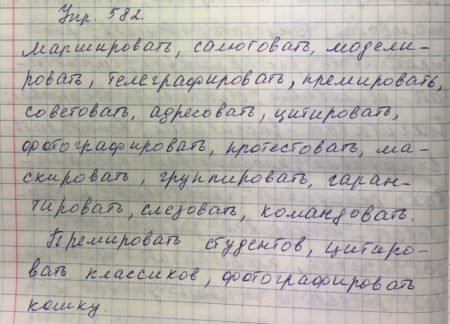 Упр. 582.
Маршировать, салютовать, модели-
ровать, телеграфировать, премировать,
советовать, адресовать, цитировать,
фотографировать, протестовать, ма-
скировать, группировать, гаран-
тировать, следовать, командовать.
Премировать студентов, цитиро-
вать классиков, фотографировать
кошку.